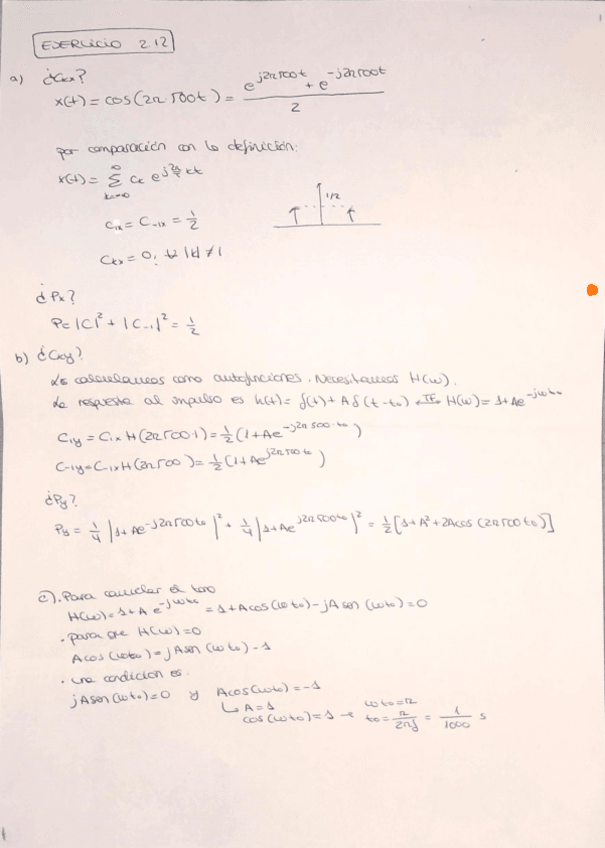 EJERCICIO 2.12
a) ¿Ckx?
x(t) = cos(2π 500t) = (e^{j2π500t} + e^{-j2π500t}) / 2
por comparación con la definición:
x(t) = Σ_{k=-∞}^{∞} Ck e^{j 2π/T kt}
C1x = C-1x = 1/2
1/2
Ckx = 0, ∀ |k| ≠ 1
¿Px?
P = |C1|² + |C-1|² = 1/2
b) ¿Cky?
Lo calculamos como autofunciones. Necesitamos H(ω).
La respuesta al impulso es h(t) = δ(t) + Aδ(t-to) TF→ H(ω) = 1+Ae^{-jωto}
C1y = C1x H(2π500·1) = 1/2 (1+Ae^{-j2π500·to})
C-1y = C-1x H(2π500) = 1/2 (1+Ae^{j2π500to})
¿Py?
Py = 1/4 |1+Ae^{-j2π500to}|² + 1/4 |1+Ae^{j2π500to}|² = 1/2 [1+A²+2Acos(2π500to)]
c). Para cancelar el tono
H(ω) = 1+Ae^{-jωto} = 1+Acos(ωto)-jAsen(ωto) = 0
· para que H(ω)=0
Acos(ωto) = jAsen(ωto) - 1
· una condición es:
jAsen(ωto)=0 y Acos(ωto) = -1
↳ A=1 ωto=π
cos(ωto)=1 → to = π/2πf = 1/1000 s